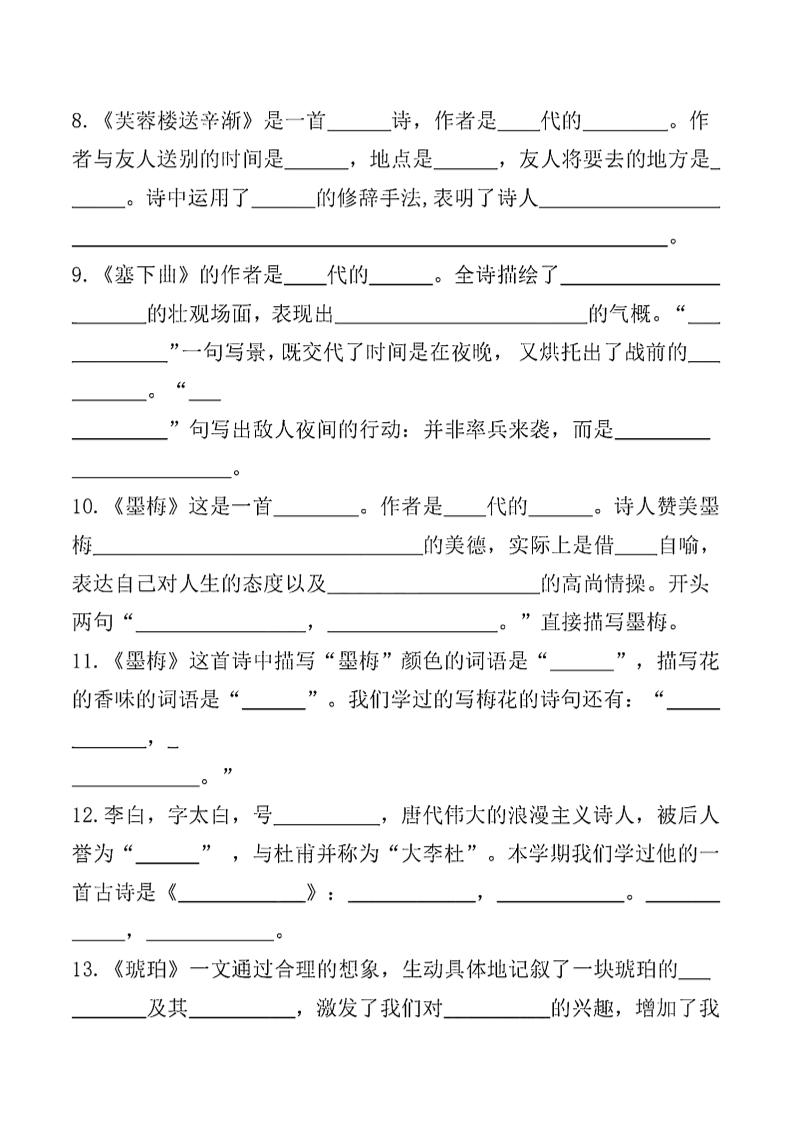 8.《芙蓉楼送辛渐》是一首______诗，作者是____代的________。作
者与友人送别的时间是______，地点是______，友人将要去的地方是_
_____。诗中运用了______的修辞手法,表明了诗人_________________
________________________________________________________。
9.《塞下曲》的作者是____代的______。全诗描绘了_______________
_______的壮观场面，表现出________________________的气概。“___
_________”一句写景，既交代了时间是在夜晚， 又烘托出了战前的___
_______。“___
_________”句写出敌人夜间的行动：并非率兵来袭，而是_________
_______________。
10.《墨梅》这是一首________。作者是____代的______。诗人赞美墨
梅_______________________________的美德，实际上是借____自喻，
表达自己对人生的态度以及____________________的高尚情操。开头
两句“________________，________________。”直接描写墨梅。
11.《墨梅》这首诗中描写“墨梅”颜色的词语是“______”，描写花
的香味的词语是“______”。我们学过的写梅花的诗句还有：“_____
_______，_
____________。”
12.李白，字太白，号__________，唐代伟大的浪漫主义诗人，被后人
誉为“______” ，与杜甫并称为“大李杜”。本学期我们学过他的一
首古诗是《____________》：____________，____________。_______
_____，____________。
13.《琥珀》一文通过合理的想象，生动具体地记叙了一块琥珀的___
_______及其__________，激发了我们对__________的兴趣，增加了我